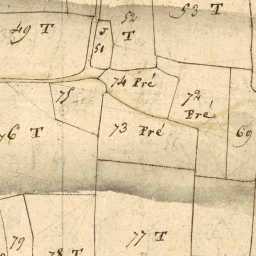 52
53 T
49 T
J
51
T
74 Pré
75
72
Pré
73 Pré
76 T
69
79
78 T
77 T